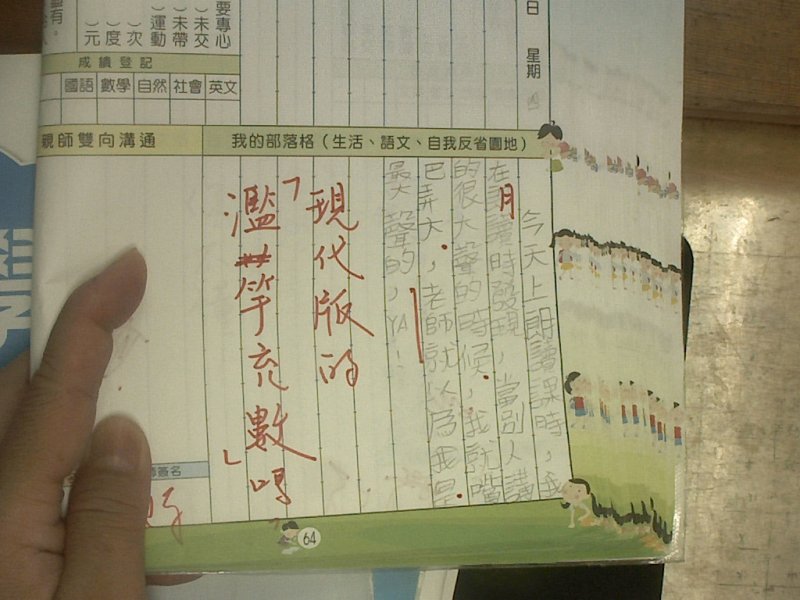 日 星期 四
要專心
)未交
)未帶
)運動
)次
)度
)元
有。
成績登記
國語 數學 自然 社會 英文
我的部落格(生活、語文、自我反省園地)
親師雙向溝通
今天上朗讀課時,我
在朗讀時發現,當別人講
的很大聲的時候,我就嘴
巴弄大,老師就以為我是
最大聲的,YA!
月
現代版的
「濫竽充數」嗎
師簽名
64